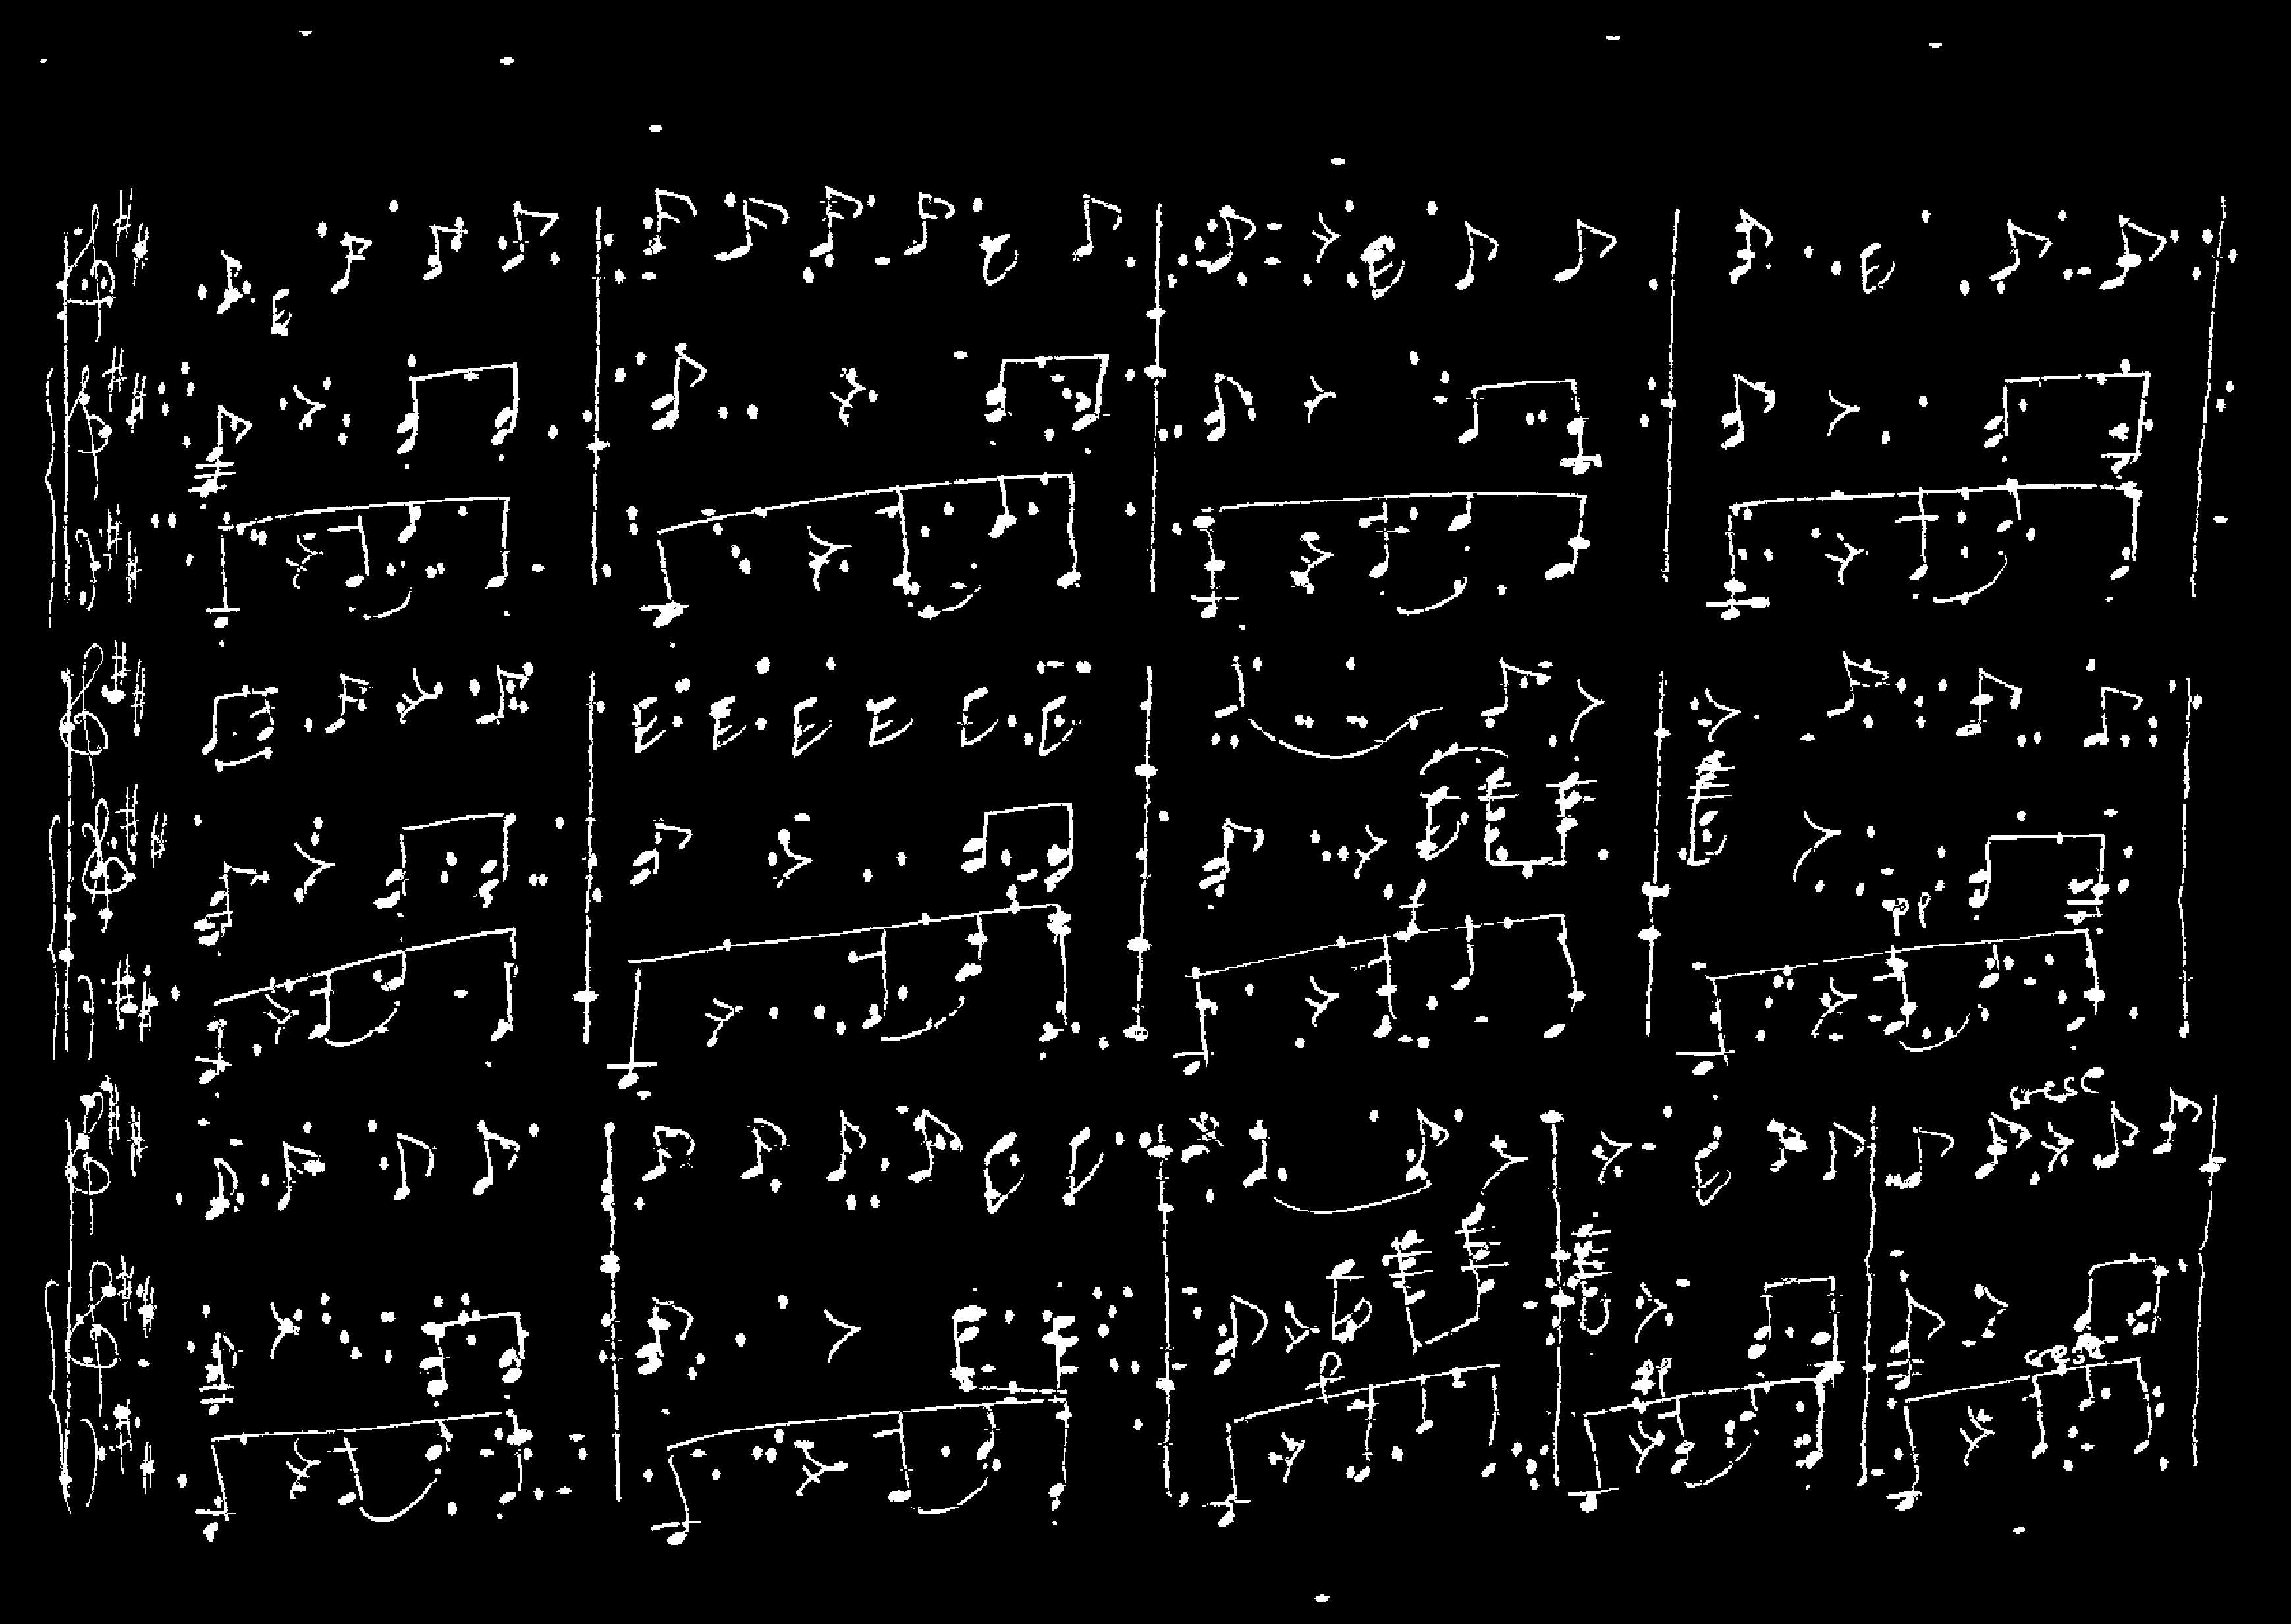 pp
cresc
p
pp
cresc